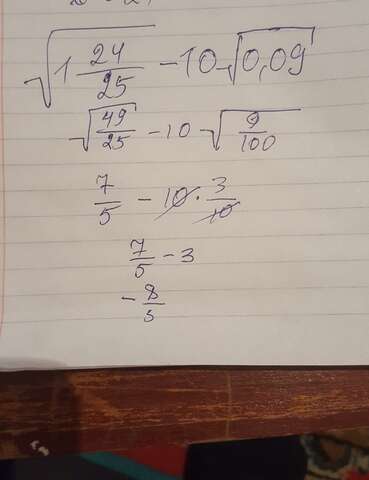 √(1 24/25) - 10√0,09
√(49/25) - 10√(9/100)
7/5 - 10 · 3/10
7/5 - 3
- 8/5